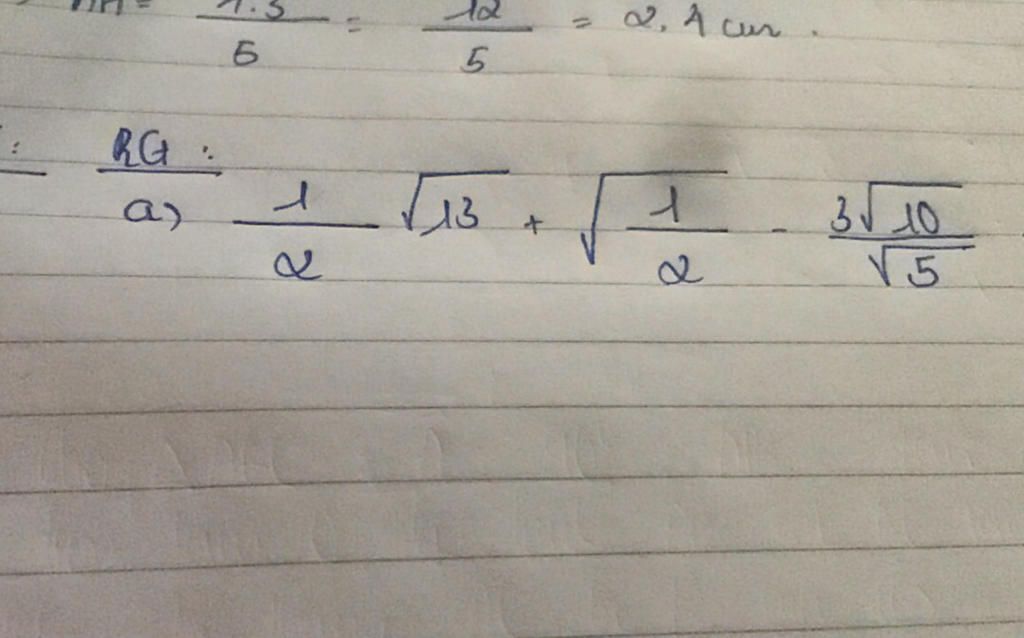 5 = 12/5 = 2.4 cm.
RG:
a) 1/2 √13 + √(1/2) - 3√10/√5